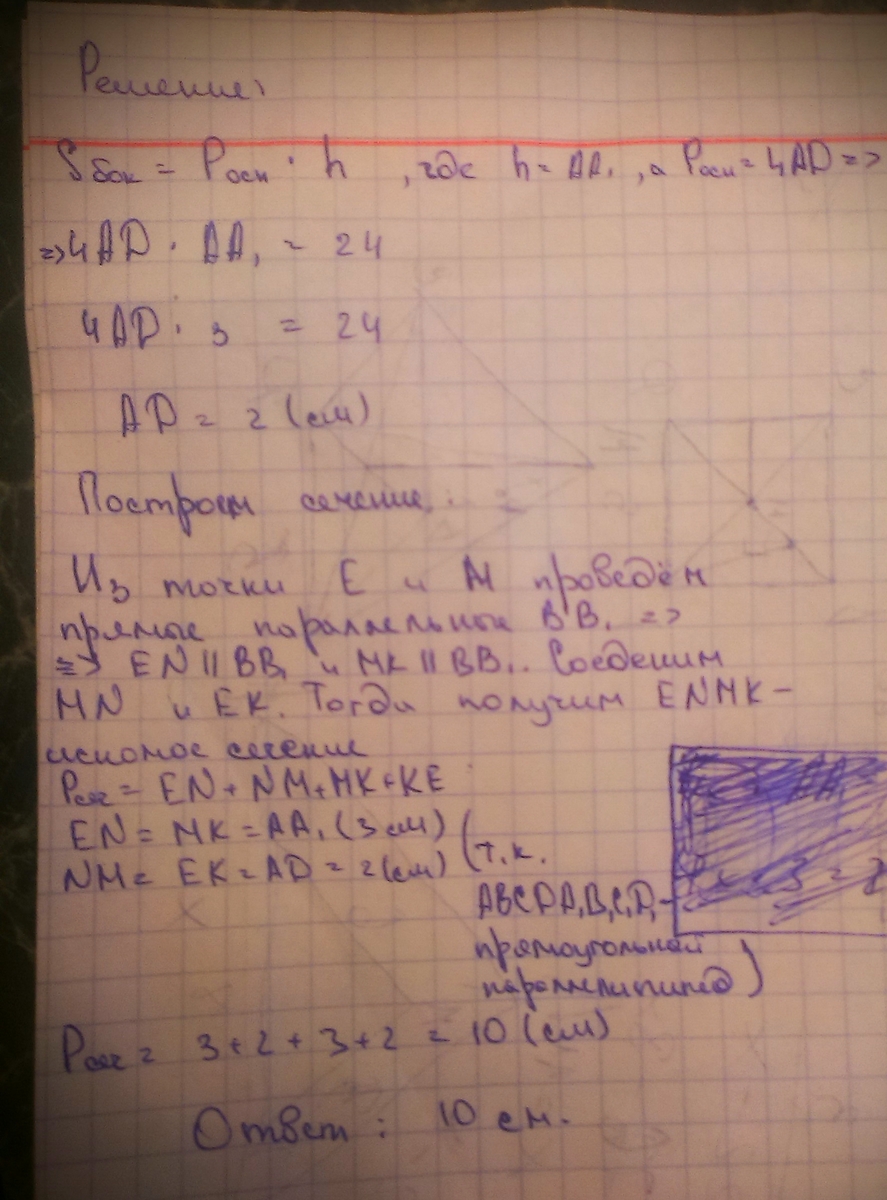 Решение:
Sбок = Pосн · h , где h = AA₁ , а Pосн = 4AD =>
=> 4AD · AA₁ = 24
4AD · 3 = 24
AD = 2 (см)
Построем сечение.
Из точки E и M проведём
прямые параллельные BB₁ =>
=> EN || BB₁ и MK || BB₁. Соеденим
MN и EK. Тогда получим ENMK -
искомое сечение
Pсеч = EN + NM + MK + KE
EN = MK = AA₁ (3 см)
NM = EK = AD = 2 (см) (т.к.
ABCDA₁B₁C₁D₁ -
прямоугольный
параллелипипед)
Pсеч = 3 + 2 + 3 + 2 = 10 (см)
Ответ: 10 см.